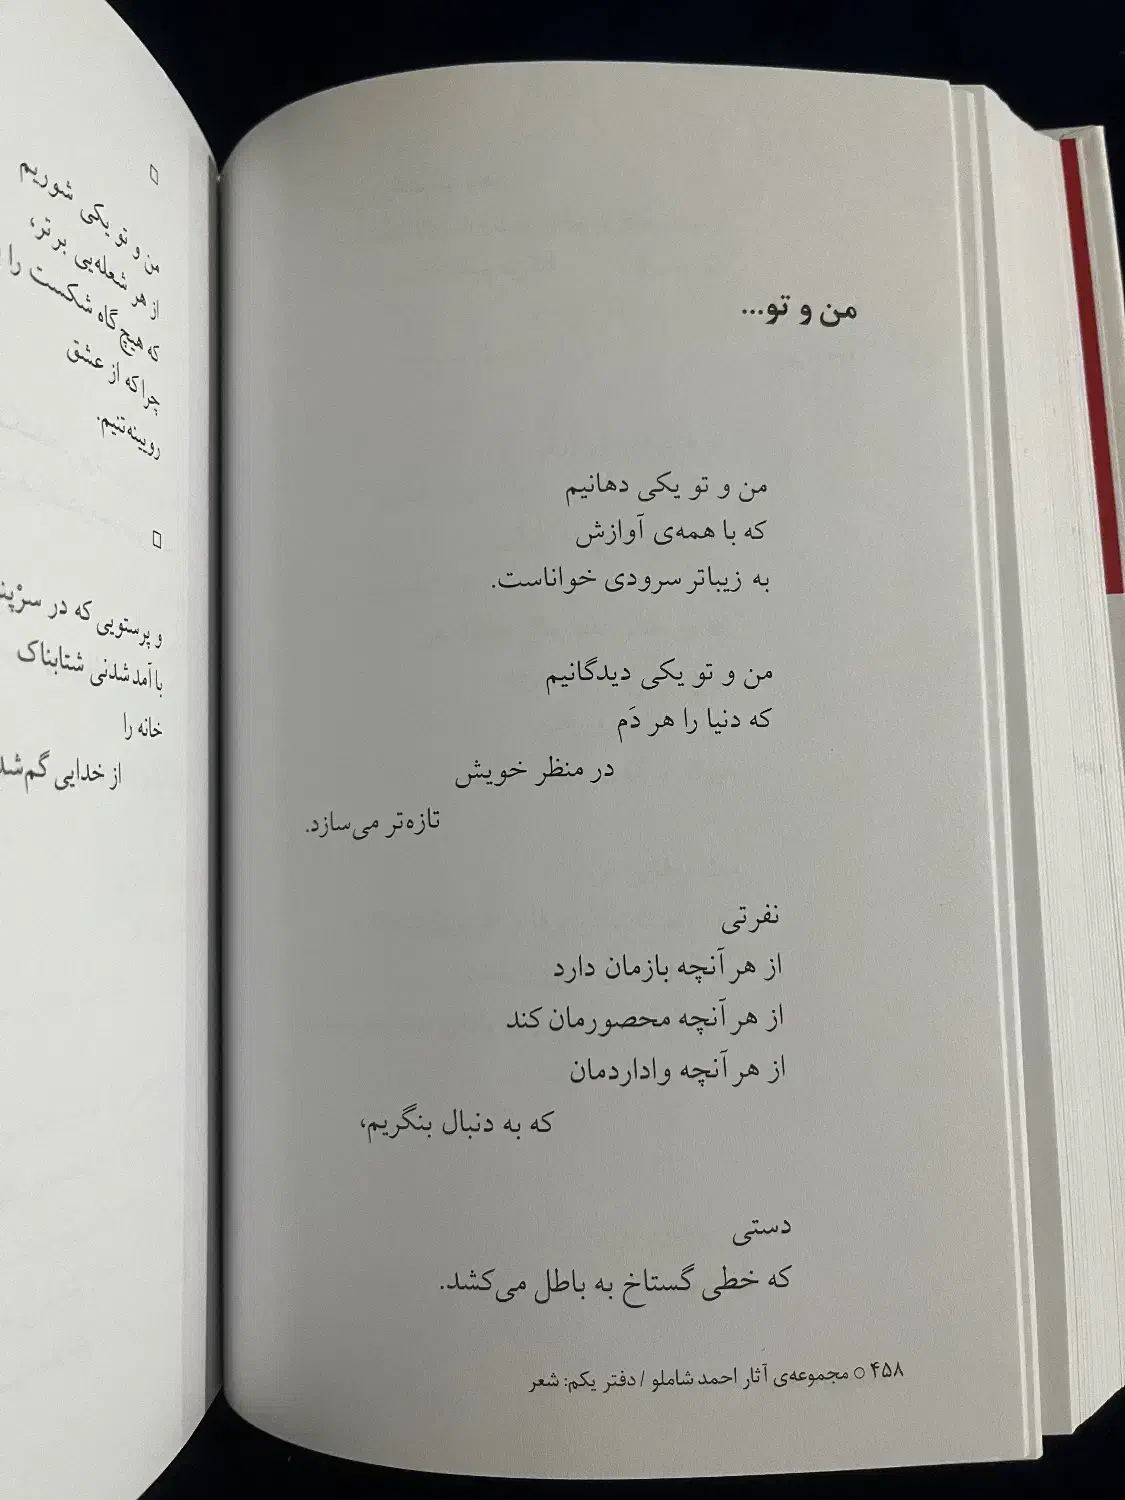 من و تو...
من و تو یکی دهانیم
که با همه‌ی آوازش
به زیباتر سرودی خواناست.
من و تو یکی دیدگانیم
که دنیا را هر دَم
در منظر خویش
تازه‌تر می‌سازد.
نفرتی
از هر آنچه بازمان دارد
از هر آنچه محصورمان کند
از هر آنچه واداردمان
که به دنبال بنگریم،
دستی
که خطی گستاخ به باطل می‌کشد.
۴۵۸ ○ مجموعه‌ی آثار احمد شاملو / دفتر یکم: شعر
من و تو یکی شوریم
از هر شعله‌یی برتر،
که هیچ‌گاه شکست را
چرا که از عشق
رویینه‌تنیم.
و پرستویی که در
با آمدشدنی شتابناک
خانه را
از خدایی